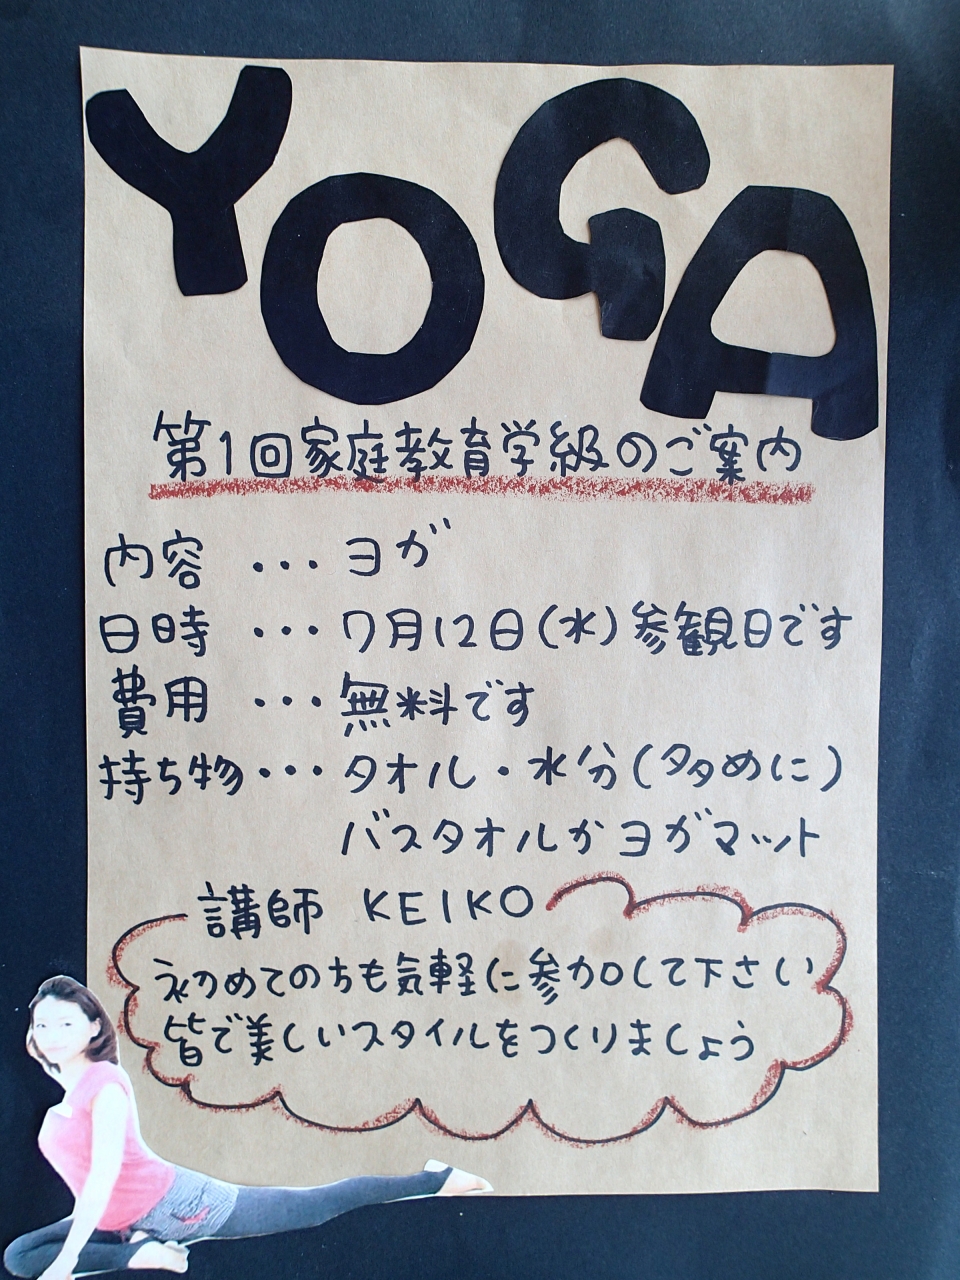 YOGA
第1回家庭教育学級のご案内
内容 ・・・ヨガ
日時 ・・・7月12日(水)参観日です
費用 ・・・無料です
持ち物・・・タオル・水分(多めに)
バスタオルかヨガマット
講師 KEIKO
初めてのちも気軽に参加して下さい
皆で美しいスタイルをつくりましょう